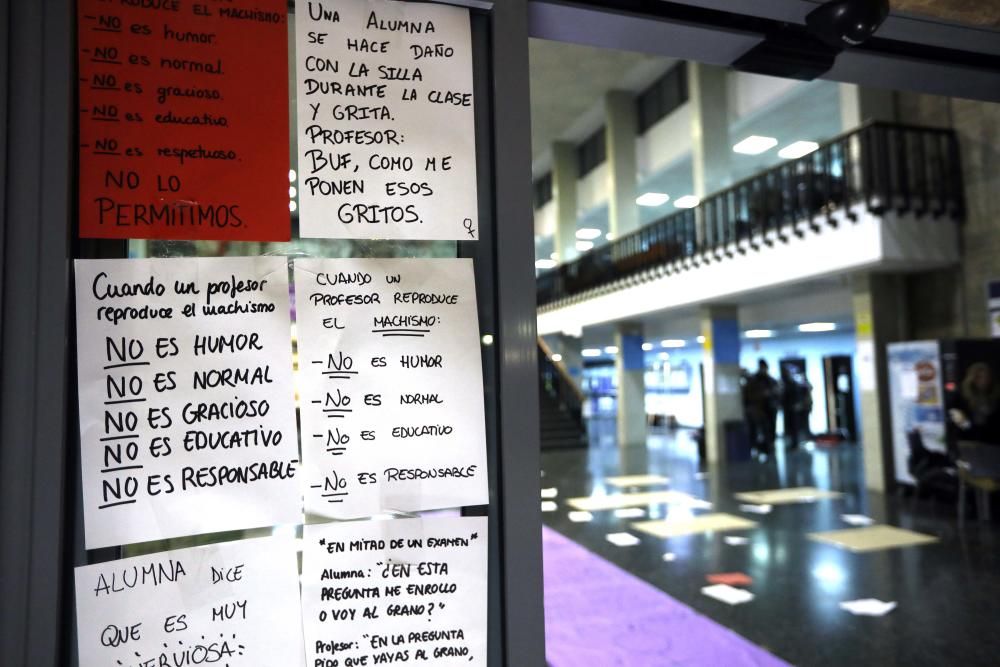 REPRODUCE EL MACHISMO:
- NO es humor.
- NO es normal.
- NO es gracioso.
- NO es educativo.
- NO es respetuoso.
NO LO
PERMITIMOS.
UNA ALUMNA
SE HACE DAÑO
CON LA SILLA
DURANTE LA CLASE
Y GRITA.
PROFESOR:
BUF, COMO ME
PONEN ESOS
GRITOS.
♀
Cuando un profesor
reproduce el machismo
NO ES HUMOR
NO ES NORMAL
NO ES GRACIOSO
NO ES EDUCATIVO
NO ES RESPONSABLE
CUANDO UN
PROFESOR REPRODUCE
EL MACHISMO:
- No ES HUMOR
- No ES NORMAL
- No ES EDUCATIVO
- No ES RESPONSABLE
ALUMNA DICE
QUE ES MUY
NERVIOSA:
"EN MITAD DE UN EXAMEN"
Alumna: "¿EN ESTA
PREGUNTA ME ENROLLO
O VOY AL GRANO?"
Profesor: "EN LA PREGUNTA
PIDO QUE VAYAS AL GRANO,